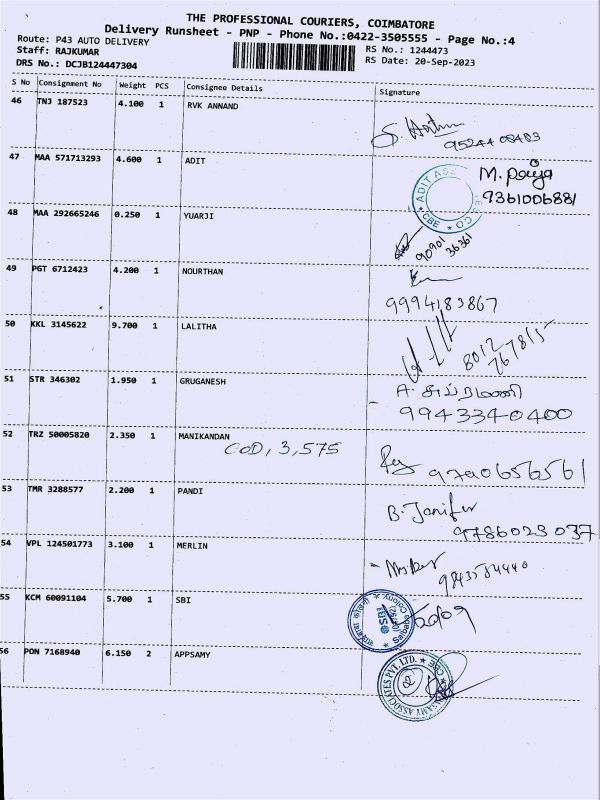 THE PROFESSIONAL COURIERS, COIMBATORE
Delivery Runsheet - PNP - Phone No.:0422-3505555 - Page No.:4
Route: P43 AUTO DELIVERY
RS No.: 1244473
Staff: RAJKUMAR
RS Date: 20-Sep-2023
DRS No.: DCJB124447304
S No Consignment No Weight PCS Consignee Details Signature
46 TNJ 187523 4.100 1 RVK ANNAND
9524408483
47 MAA 571713293 4.600 1 ADIT
ADIT ASS CBE
M. Poija
9361006881
48 MAA 292665246 0.250 1 YUARJI
90901
36361
49 PGT 6712423 4.200 1 NOURTHAN
9994183867
50 KKL 3145622 9.700 1 LALITHA
8012
767815
51 STR 346302 1.950 1 GRUGANESH
A. சுப்ரமணி
9943340400
52 TRZ 50005820 2.350 1 MANIKANDAN
COD, 3,575
9790656561
53 TMR 3288577 2.200 1 PANDI
B. Janifer
9786023037
54 VPL 124501773 3.100 1 MERLIN
9843584440
55 KCM 60091104 5.700 1 SBI
Saibaba Colony
56 PON 7168940 6.150 2 APPSAMY
ASSOCIATES PVT. LTD. CBE